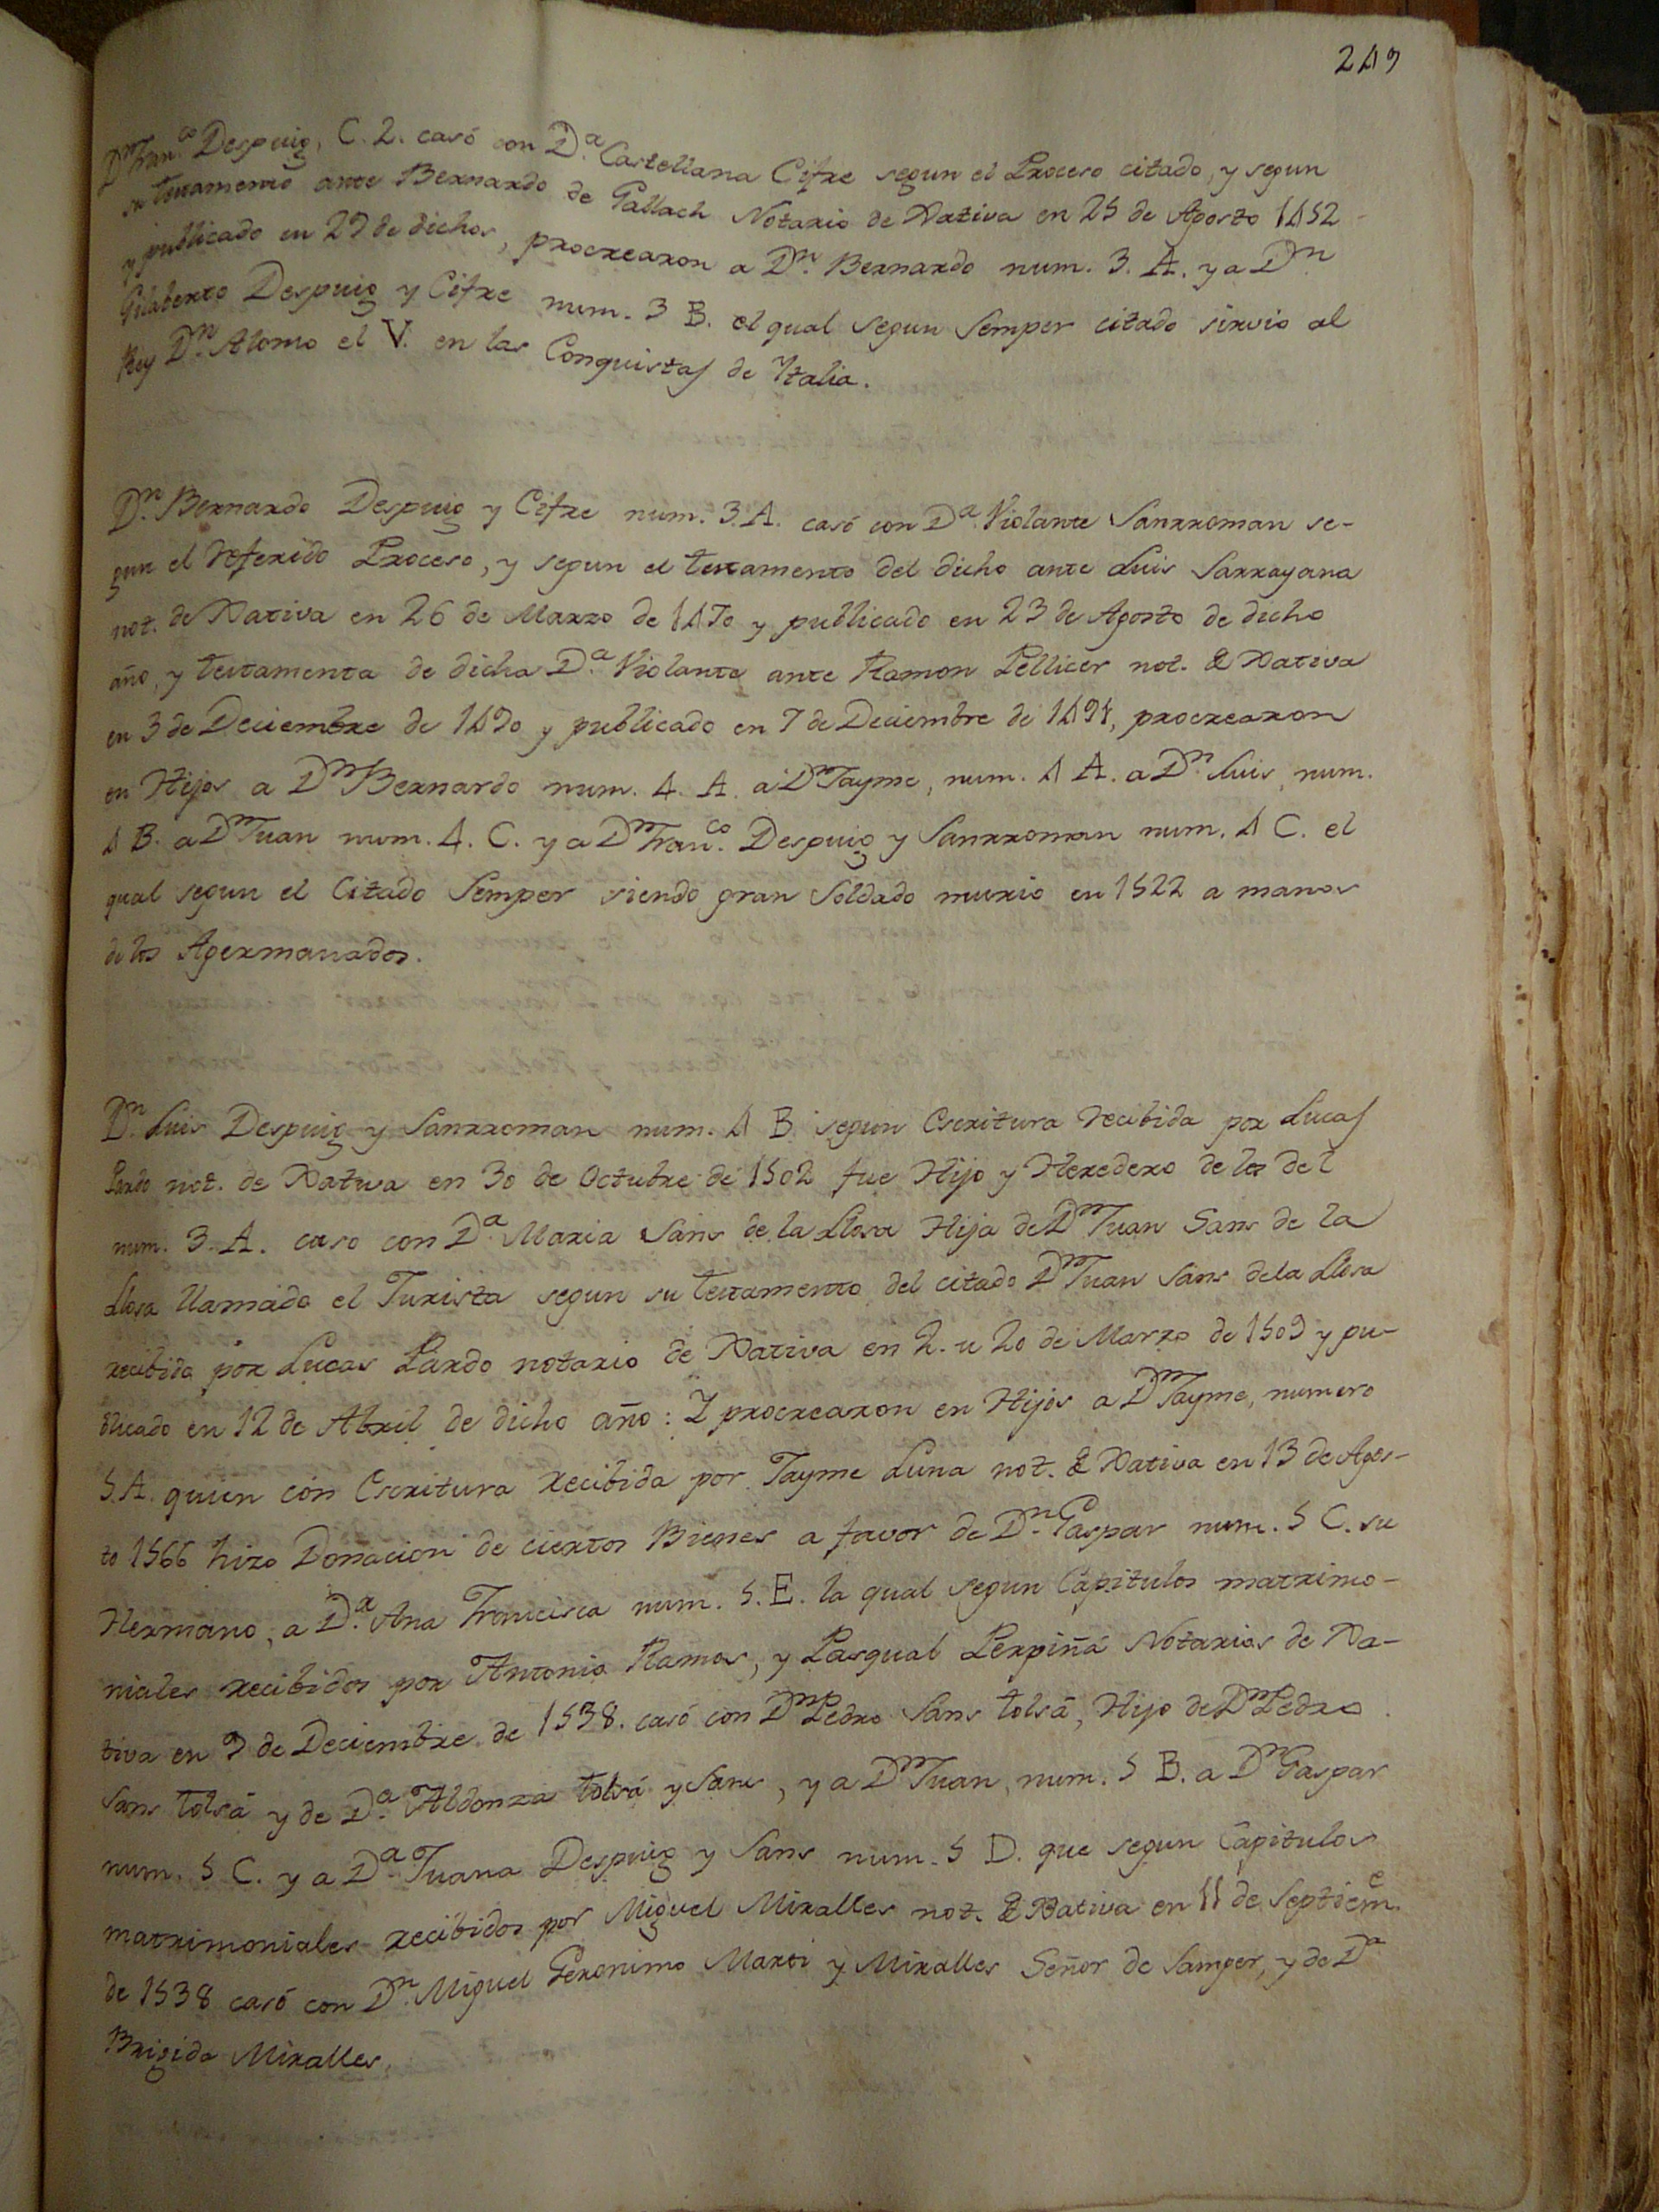 249
Dn. Franco. Despuig, C. 2. casó con Da. Castellana Cifre segun el Proceso citado, y segun
su testamento ante Bernardo de Gallach Notario de Xativa en 25 de Agosto 1452
y publicado en 29 de dichos, procrearon a Dn. Bernardo num. 3. A. y a Dn.
Gilaberto Despuig y Cifre num. 3 B. el qual segun Semper citado sirvio al
Rey Dn. Alonso el V. en las Conquistas de Ytalia.
Dn. Bernardo Despuig y Cifre num. 3. A. casó con Da. Violante Sanrroman se-
gun el referido Proceso, y segun el testamento del dicho ante Luis Sarrayana
not. de Xativa en 26 de Marzo de 1470 y publicado en 23 de Agosto de dicho
año, y testamenta de dicha Da. Violante ante Ramon Pellicer not. de Xativa
en 3 de Deciembre de 1490 y publicado en 7 de Deciembre de 1491, procrearon
en Hijos a Dn. Bernardo num. 4. A. a Dn Jayme, num. 4 A. a Dn. Luis, num.
4 B. a Dn Juan num. 4. C. y a Dn Franco. Despuig y Sanrroman num. 4 C. el
qual segun el Citado Semper siendo gran Soldado murio en 1522 a manos
de los Agermanados.
Dn. Luis Despuig y Sanrroman num. 4 B. segun Escritura recibida por Lucas
Pardo not. de Xativa en 30 de Octubre de 1502 fue Hijo y Heredero de los del
num. 3. A. caso con Da. Maria Sans de la Llosa Hija de Dn Juan Sans de la
Llosa llamado el Jurista segun su testamento del citado Dn Juan Sans de la Llosa
recibida por Lucas Pardo notario de Xativa en 2. u 20 de Marzo de 1509 y pu-
blicado en 12 de Abril de dicho año: Y procrearon en Hijos a Dn Jayme, numero
5. A. quien con Escritura recibida por Jayme Luna not. de Xativa en 13 de Agos-
to 1566 hizo Donacion de ciertos Bienes a favor de Dn. Gaspar num. 5 C. su
Hermano, a Da. Ana Francisca num. 5. E. la qual segun Capitulos matrimo-
niales recibidos por Antonio Ramos, y Pasqual Perpiñá Notarios de Xa-
tiva en 9 de Deciembre de 1538. casó con Dn Pedro Sans tolsá, Hijo de Dn Pedro
Sans tolsá y de Da. Aldonza tolsá y Sans, y a Dn Juan, num. 5 B. a Dn Gaspar
num. 5 C. y a Da. Juana Despuig y Sans num. 5 D. que segun Capitulos
matrimoniales recibidos por Miguel Miralles not. de Xativa en 11 de Septieme.
de 1538 casó con Dn. Miguel Geronimo Marti y Miralles Señor de Samper, y de Da.
Brigida Miralles.